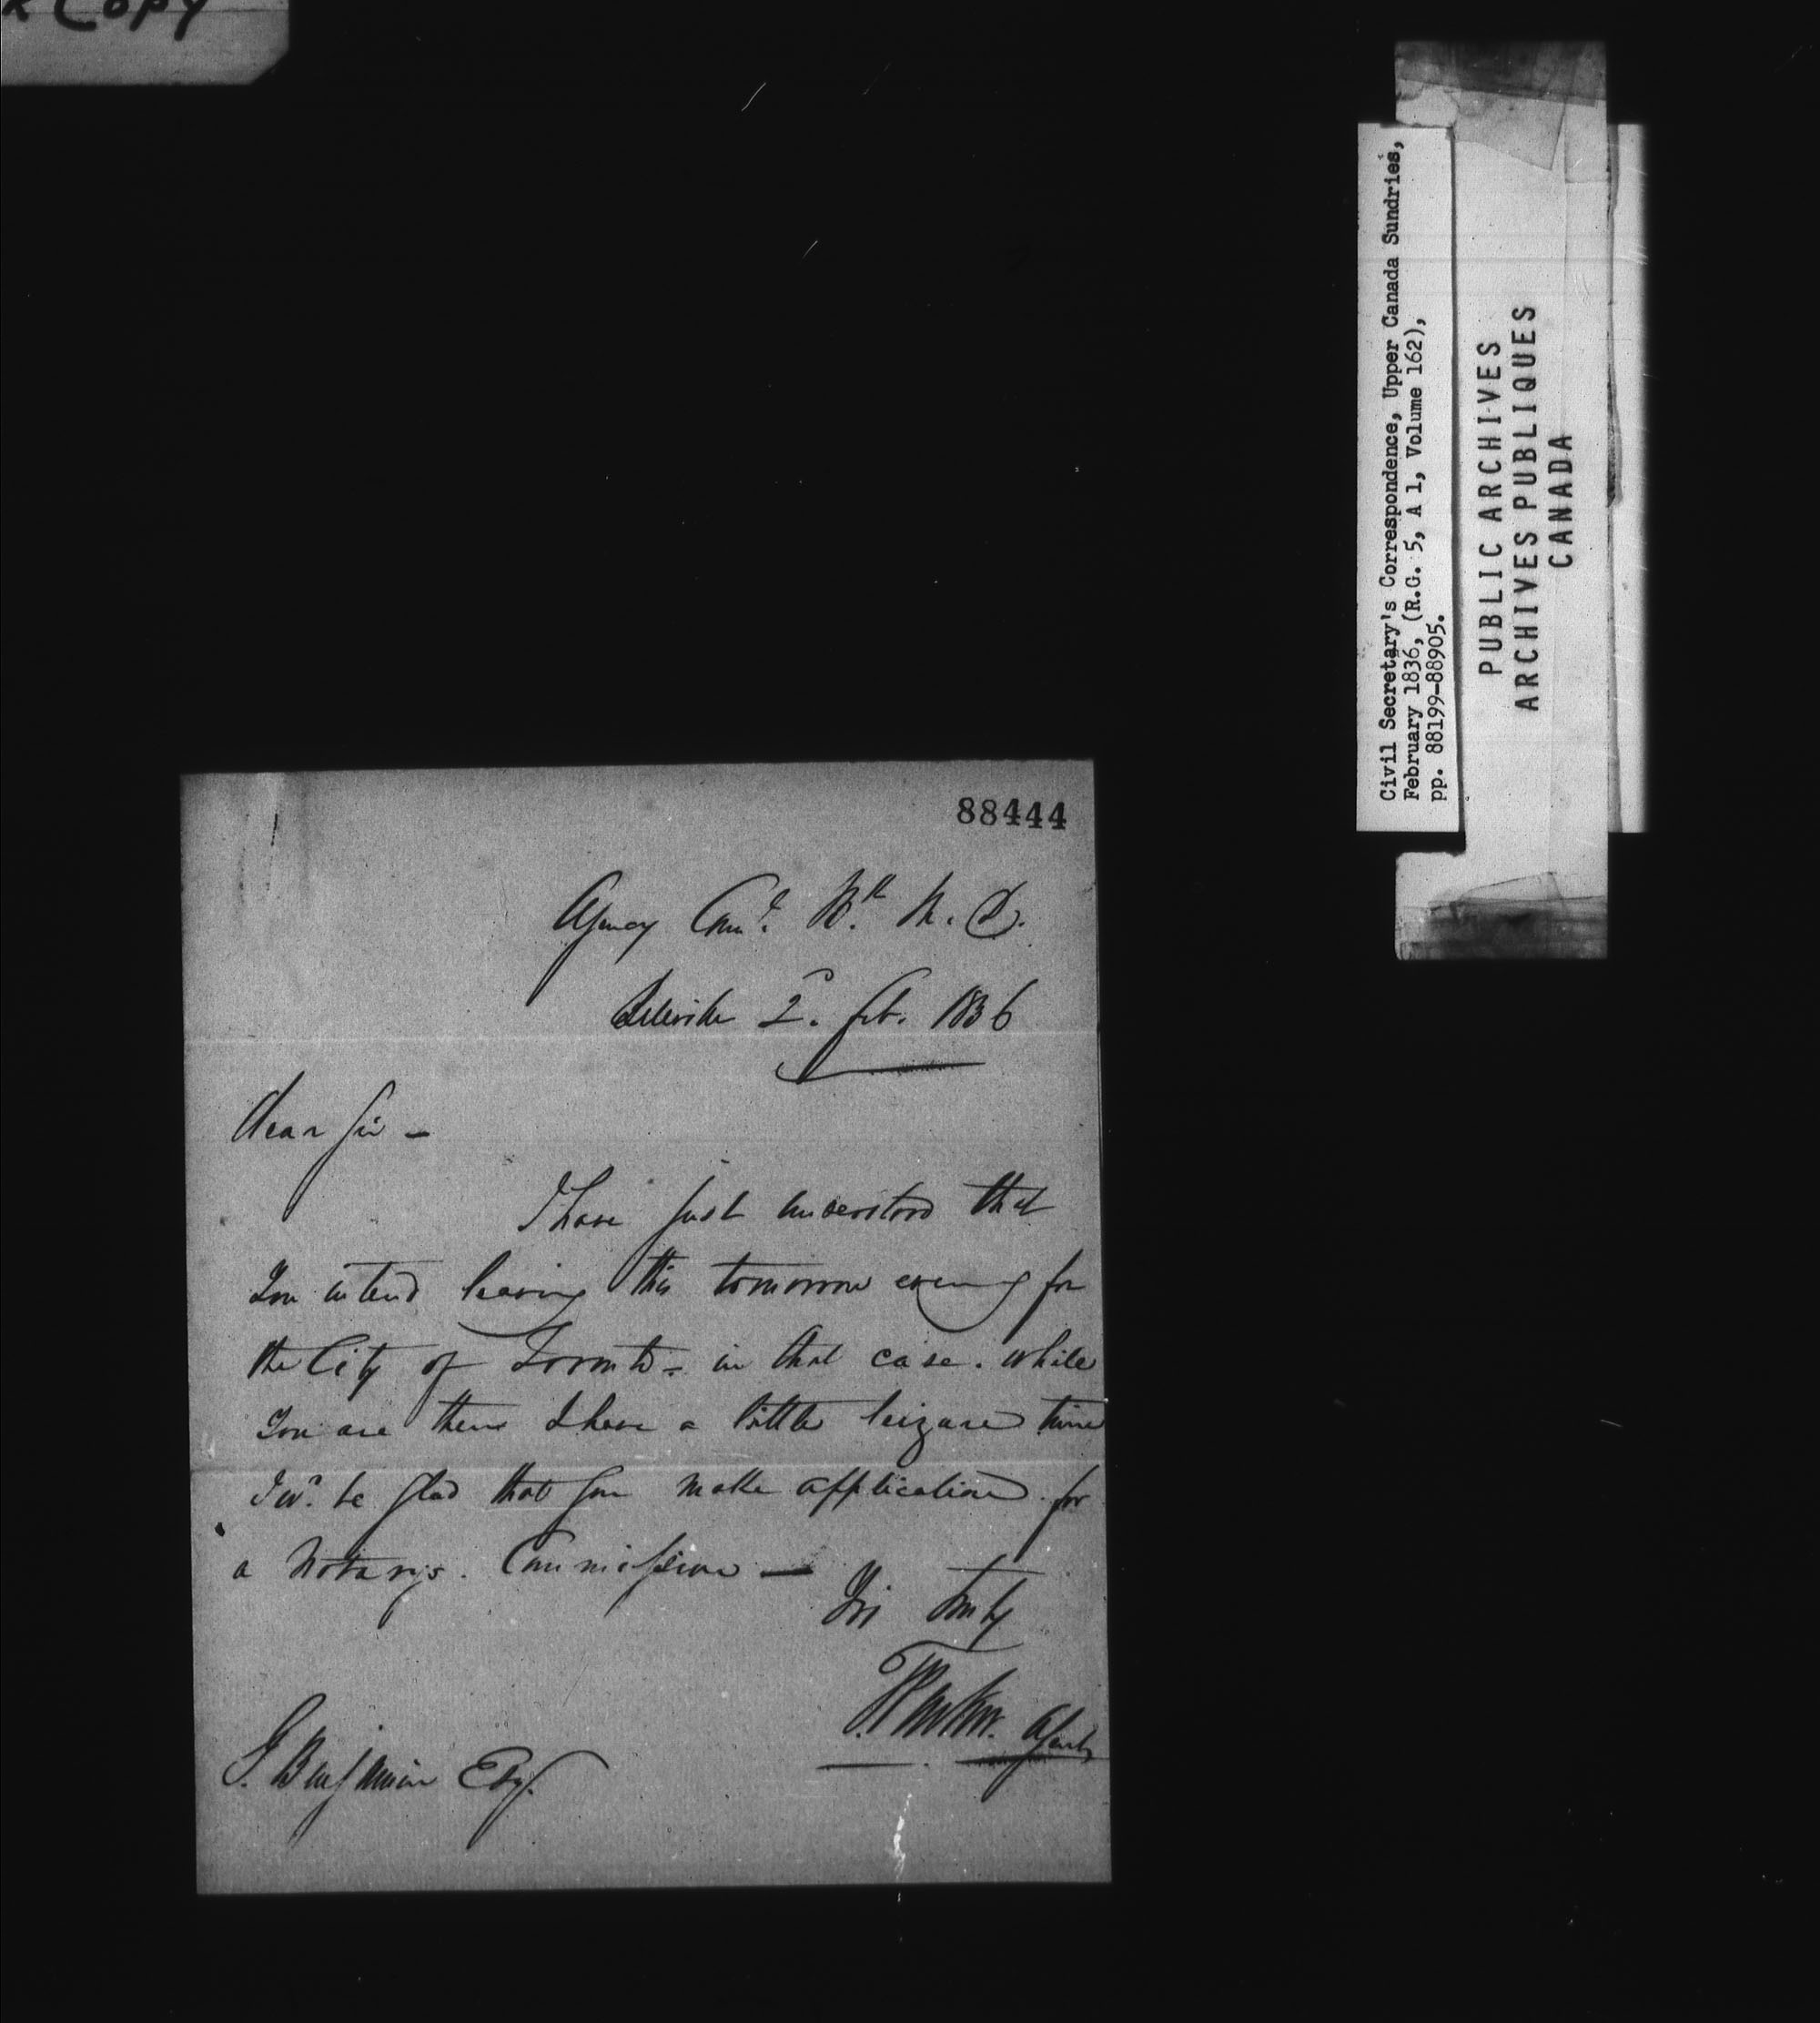 Copy
Civil Secretary's Correspondence, Upper Canada Sundries,
February 1836, (R.G. 5, A 1, Volume 162),
pp. 88199-88905.
PUBLIC ARCHIVES
ARCHIVES PUBLIQUES
CANADA
88444
Agency Coml. Bk M. D.
Belleville 2d. Feb. 1836
Dear Sir -
I have just understood that
You intend leaving this tomorrow evening for
the City of Toronto - in that case. while
You are there & have a little leizure time
I wd. be glad that you make application for
a Notarys. Commission —
Yrs truly
Agent
G. Benjamin Esq.